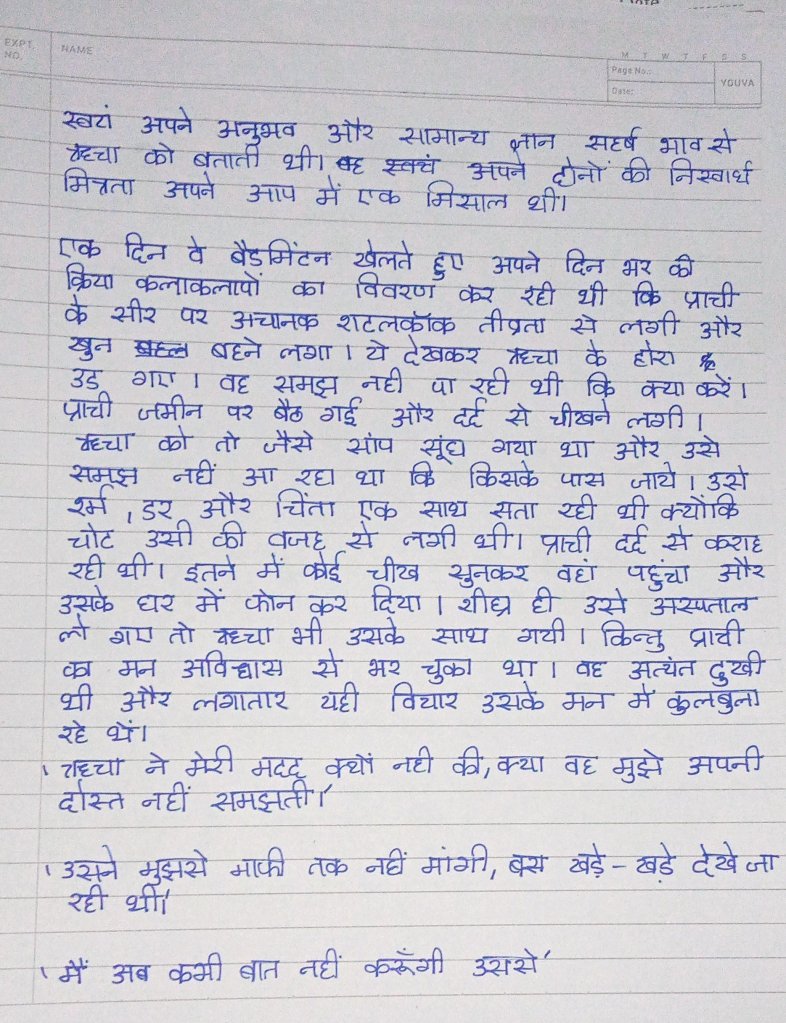 EXPT. NO.
NAME
M T W T F S S
Page No.:
Date:
YOUVA
स्वयं अपने अनुभव और सामान्य ज्ञान सहर्ष भाव से
ऋचा को बताती थी। वह स्वयं अपने दोनों की निस्वार्थ
मित्रता अपने आप में एक मिसाल थी।
एक दिन वे बैडमिंटन खेलते हुए अपने दिन भर की
क्रिया कलाकलापों का विवरण कर रही थी कि प्राची
के सीर पर अचानक शटलकॉक तीव्रता से लगी और
खुन बहने लगा। ये देखकर ऋचा के होश
उड गए। वह समझ नही पा रही थी कि क्या करें।
प्राची जमीन पर बैठ गई और दर्द से चीखने लगी।
ऋचा को तो जैसे सांप सूंघ गया था और उसे
समझ नहीं आ रहा था कि किसके पास जाये। उसे
शर्म, डर और चिंता एक साथ सता रही थी क्योंकि
चोट उसी की वजह से लगी थी। प्राची दर्द से कराह
रही थी। इतने में कोई चीख सुनकर वहां पहुंचा और
उसके घर में फोन कर दिया। शीघ्र ही उसे अस्पताल
ले गए तो ऋचा भी उसके साथ गयी। किन्तु प्राची
का मन अविश्वास से भर चुका था। वह अत्यंत दुखी
थी और लगातार यही विचार उसके मन में कुलबुना
रहे थें।
'ऋचा ने मेरी मदद क्यों नही की, क्या वह मुझे अपनी
दोस्त नहीं समझती।'
'उसने मुझसे माफी तक नहीं मांगी, बस खड़े-खड़े देखे जा
रही थी।'
'मैं अब कभी बात नहीं करूँगी उससे'